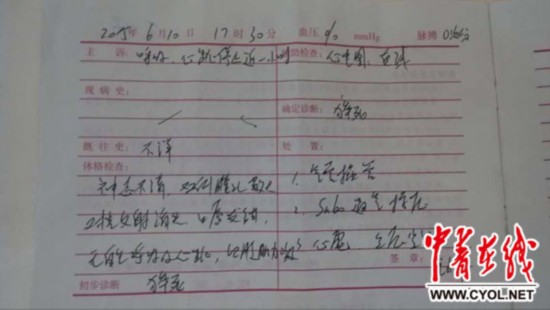 2015年 6月10日 17时30分 血压 0/0 mmHg 脉搏 0次/分
主 诉： 呼吸、心跳停止近一小时 辅助检查： 心电图：直线
现 病 史：
确定诊断： 猝死
既 往 史： 不详 处 置：
体格检查：
神志不清 双侧瞳孔散大 1. 气管插管
对光反射消失 口唇发绀 2.
无自主呼吸及心跳，四肢肌力
签 章：
初步诊断 猝死
中青在线
WWW.CYOL.NET